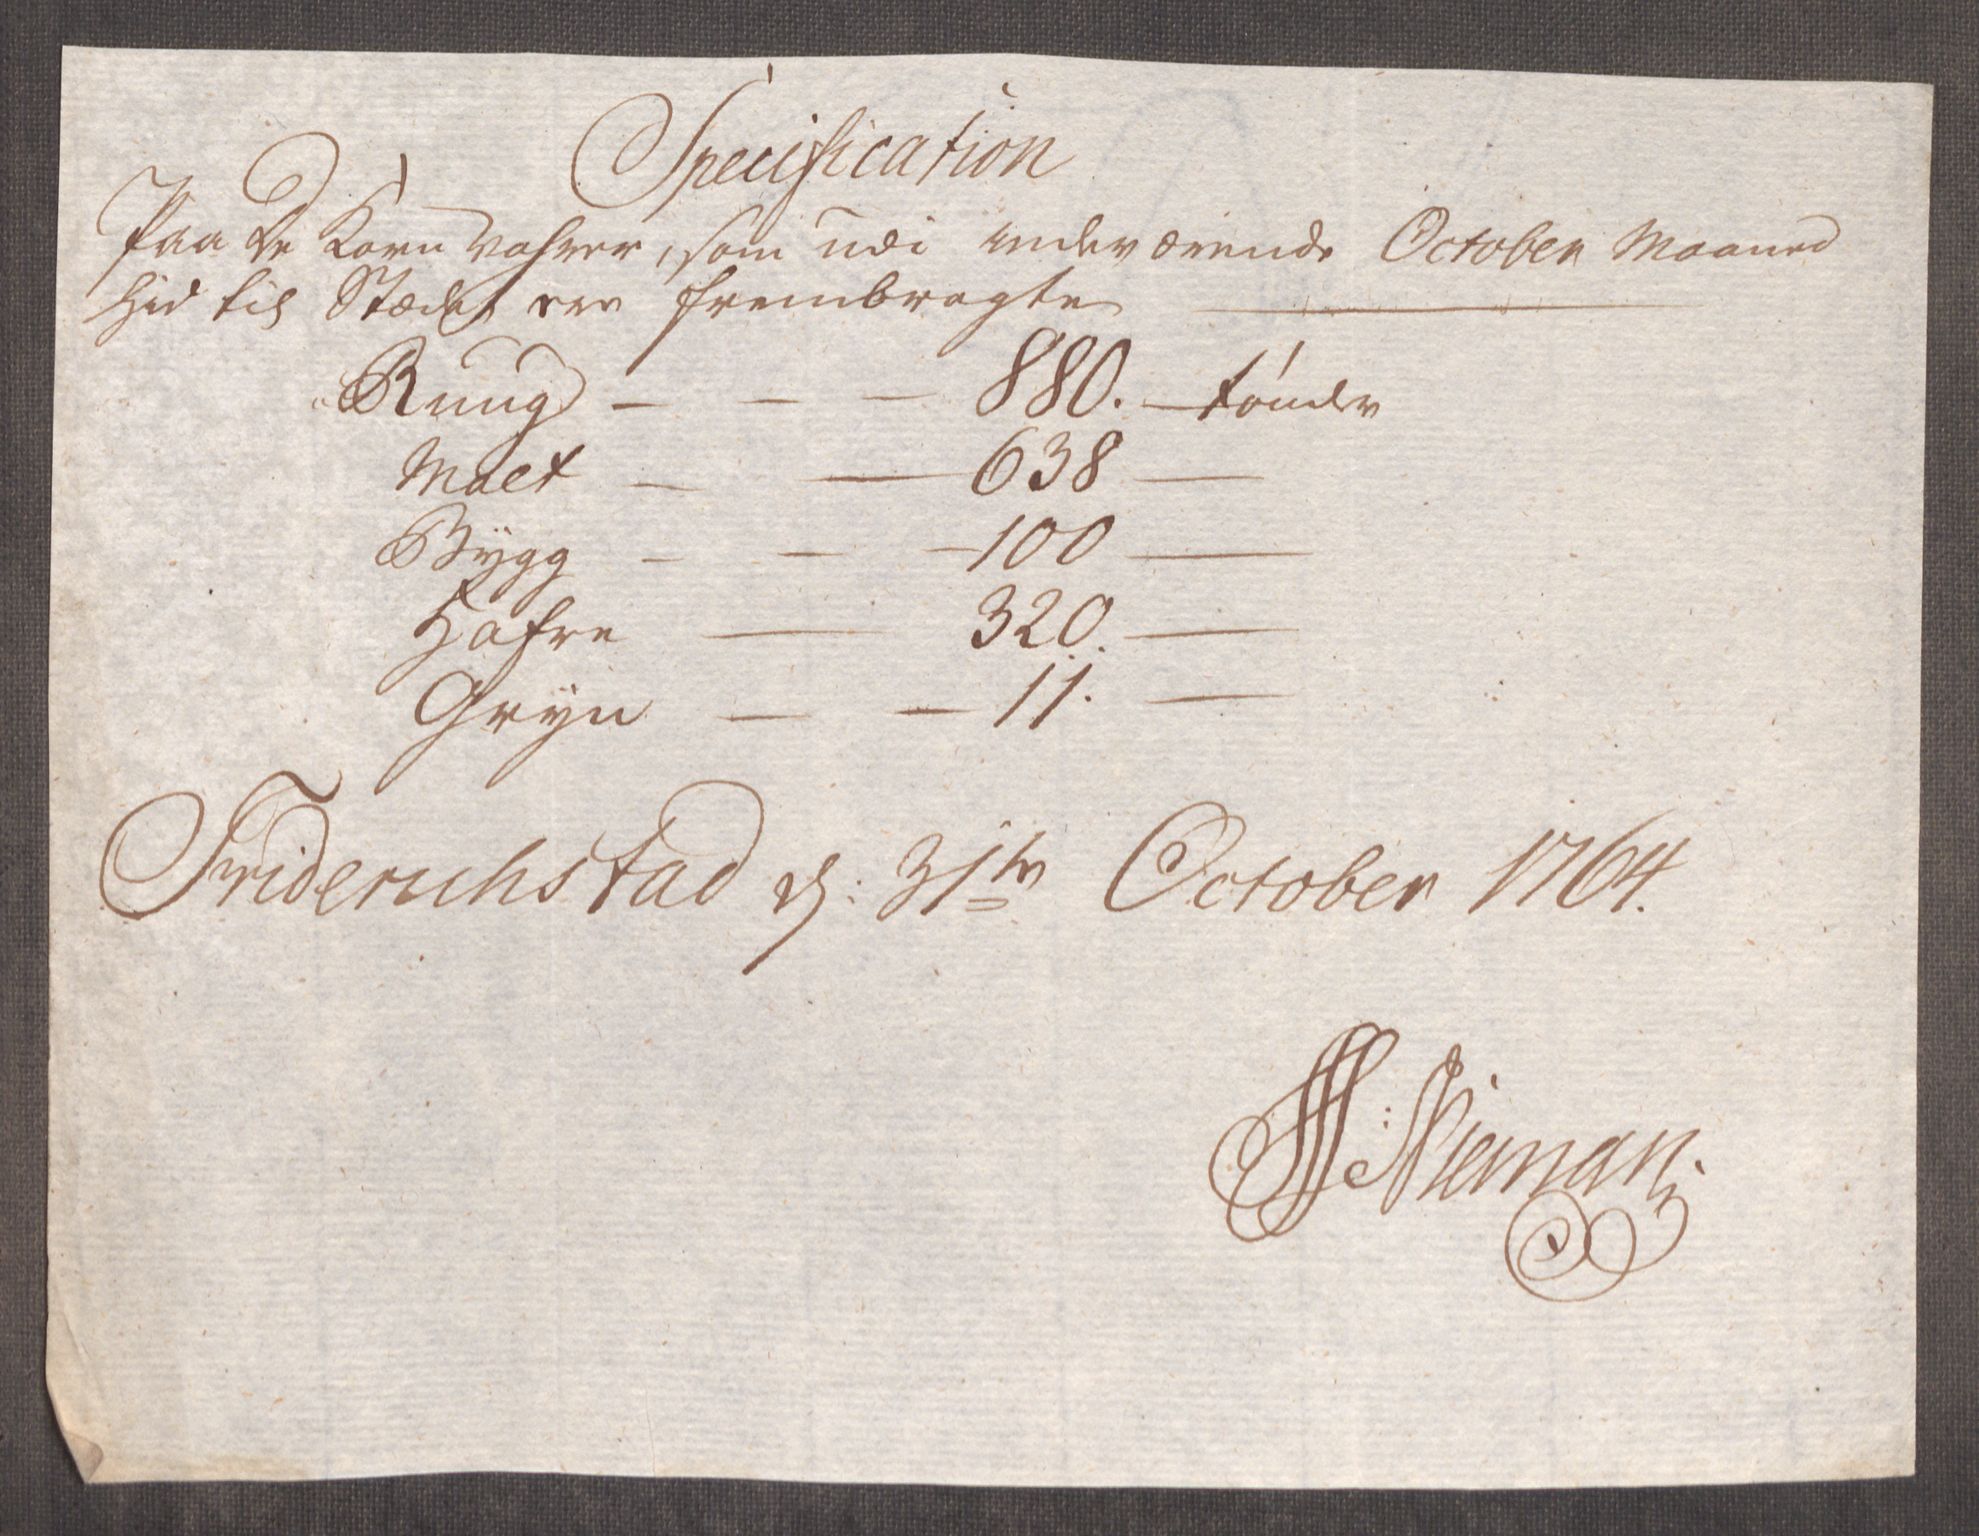 Specification
Paa De Korn Vahrer, som udi indeværende October Maaned
hid til Stædet ere frembragte
Ruug — — — 880. — tønder
Malt — — 638 —
Bÿgg — — — 100 —
Hafre — 320. —
Grÿn — — 11. —
Friderichstad d: 31te October 1764.
Nieman